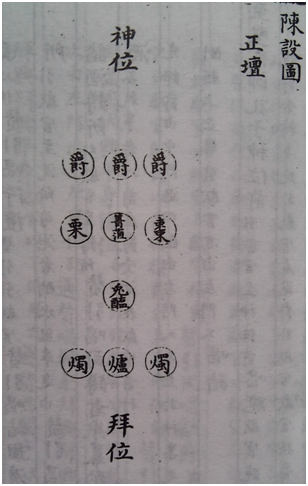 陳設圖
正壇
神位
爵 爵 爵
栗 菁菹 棗
兎醢
燭 爐 燭
拜位